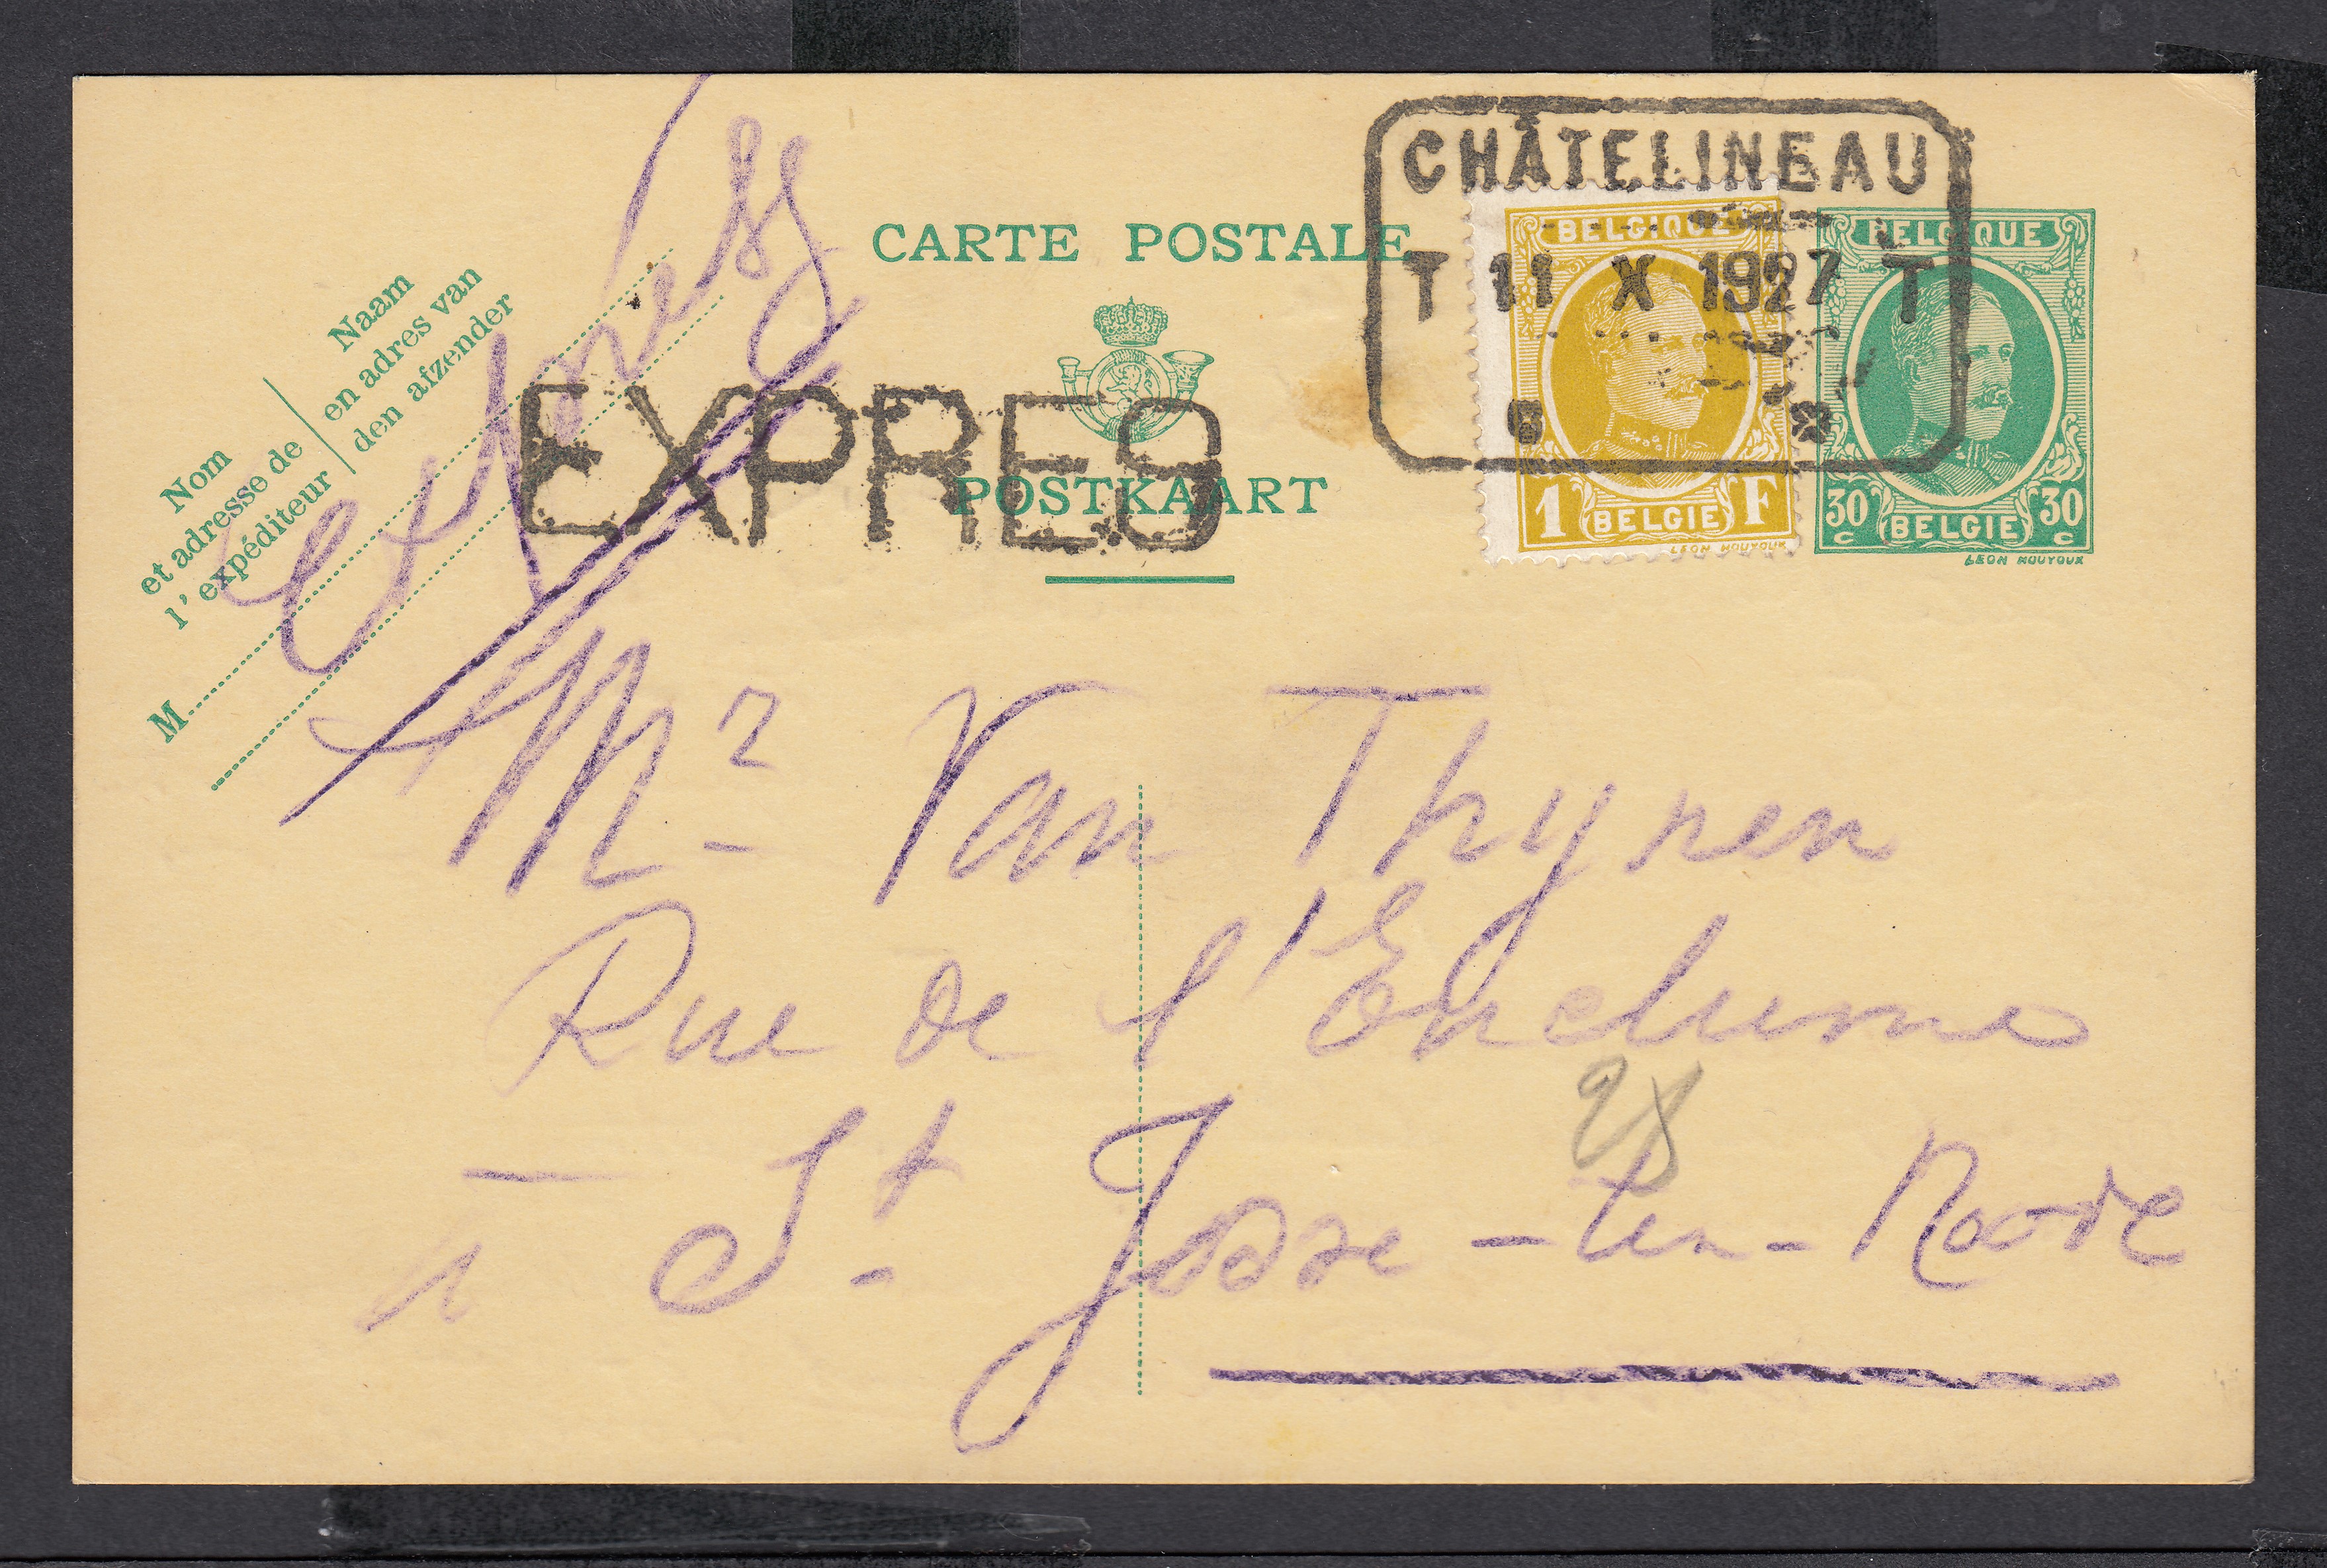 CHÂTELINEAU
T 11 X 1927 T
CARTE POSTALE
POSTKAART
EXPRES
BELGIQUE
1 F
BELGIE
LEON HOUYOUX
BELGIQUE
30 30
c BELGIE c
LEON HOUYOUX
Naam
en adres van
den afzender
Nom
et adresse de
l'expéditeur
M
Mr Van Thynen
Rue de l'Enclume
à St. Josse-ten-Noode